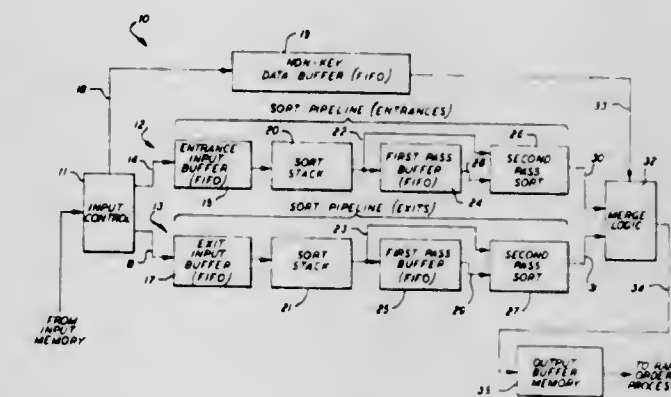 10
19
NON-KEY
DATA BUFFER (FIFO)
18
33
SORT PIPELINE (ENTRANCES)
12
20
22
26
30
32
11
14
ENTRANCE
INPUT
BUFFER
(FIFO)
SORT
STACK
FIRST PASS
BUFFER
(FIFO)
28
SECOND
PASS
SORT
INPUT
CONTROL
13
24
MERGE
LOGIC
SORT PIPELINE (EXITS)
23
EXIT
INPUT
BUFFER
(FIFO)
SORT
STACK
FIRST PASS
BUFFER
(FIFO)
SECOND
PASS
SORT
17
21
25
27
34
FROM
INPUT
MEMORY
35
OUTPUT
BUFFER
MEMORY
TO
ORDER